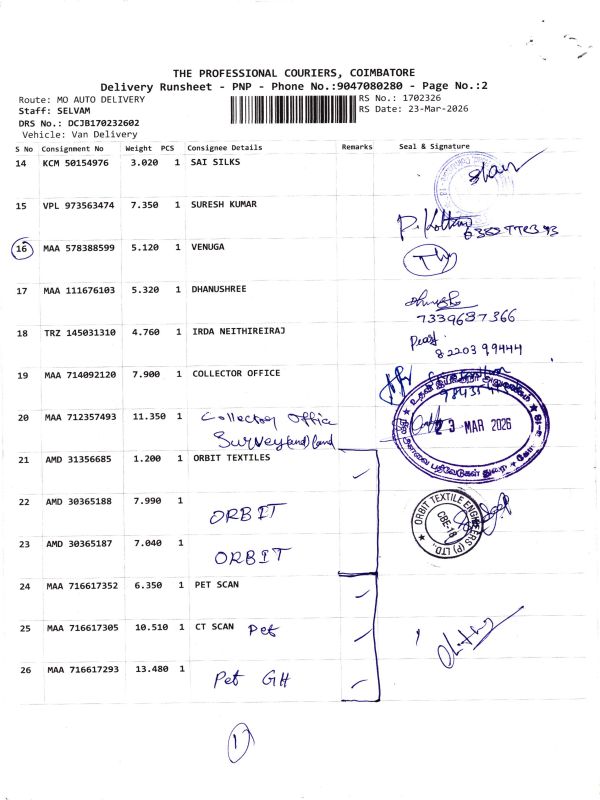 THE PROFESSIONAL COURIERS, COIMBATORE
Delivery Runsheet - PNP - Phone No.:9047080280 - Page No.:2
Route: MO AUTO DELIVERY
RS No.: 1702326
Staff: SELVAM
RS Date: 23-Mar-2026
DRS No.: DCJB170232602
Vehicle: Van Delivery
S No Consignment No Weight PCS Consignee Details Remarks Seal & Signature
14 KCM 50154976 3.020 1 SAI SILKS
15 VPL 973563474 7.350 1 SURESH KUMAR
16 MAA 578388599 5.120 1 VENUGA
17 MAA 111676103 5.320 1 DHANUSHREE
7339687366
18 TRZ 145031310 4.760 1 IRDA NEITHIREIRAJ
8220399444
19 MAA 714092120 7.900 1 COLLECTOR OFFICE
20 MAA 712357493 11.350 1 Collector Office
Survey land
23 MAR 2026
21 AMD 31356685 1.200 1 ORBIT TEXTILES
22 AMD 30365188 7.990 1 ORBIT
ORBIT TEXTILE ENGINEERS (P) LTD.,
CBE-18
23 AMD 30365187 7.040 1 ORBIT
24 MAA 716617352 6.350 1 PET SCAN
25 MAA 716617305 10.510 1 CT SCAN Pet
26 MAA 716617293 13.480 1 Pet GH